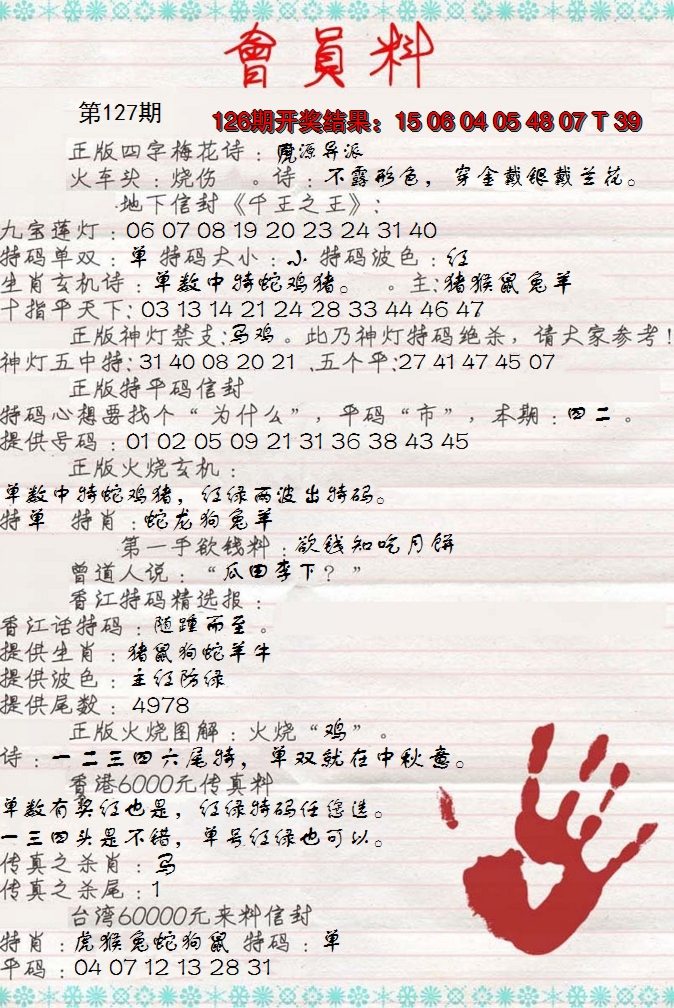 會員料
第127期
126期开奖结果：15 06 04 05 48 07 T 39
正版四字梅花诗：虎源异派
火车头：烧伤 。诗：不露形色，穿金戴银戴兰花。
.地下信封《千王之王》：
九宝莲灯：06 07 08 19 20 23 24 31 40
特码单双：单 特码大小：小 特码波色：红
生肖玄机诗：单数中特蛇鸡猪。 。主：猪猴鼠兔羊
十指平天下：03 13 14 21 24 28 33 44 46 47
正版神灯禁支：马鸡。此乃神灯特码绝杀，请大家参考！
神灯五中特：31 40 08 20 21 .五个平：27 41 47 45 07
正版特平码信封
特码心想要找个“为什么”，平码“市”，本期：四二。
提供号码：01 02 05 09 21 31 36 38 43 45
正版火烧玄机：
单数中特蛇鸡猪，红绿两波出特码。
特单 特肖：蛇龙狗兔羊
第一手欲钱料：欲钱知吃月饼
曾道人说：“瓜田李下？”
香江特码精选报：
香江话特码：随踵而至。
提供生肖：猪鼠狗蛇羊牛
提供波色：主红防绿
提供尾数：4978
正版火烧图解：火烧“鸡”。
诗：一二三四六尾特，单双就在中秋意。
香港6000元传真料
单数有奖红也是，红绿特码任您选。
一三四头是不错，单号红绿也可以。
传真之杀肖：马
传真之杀尾：1
台湾60000元来料信封
特肖：虎猴兔蛇狗鼠 特码：单
平码：04 07 12 13 28 31